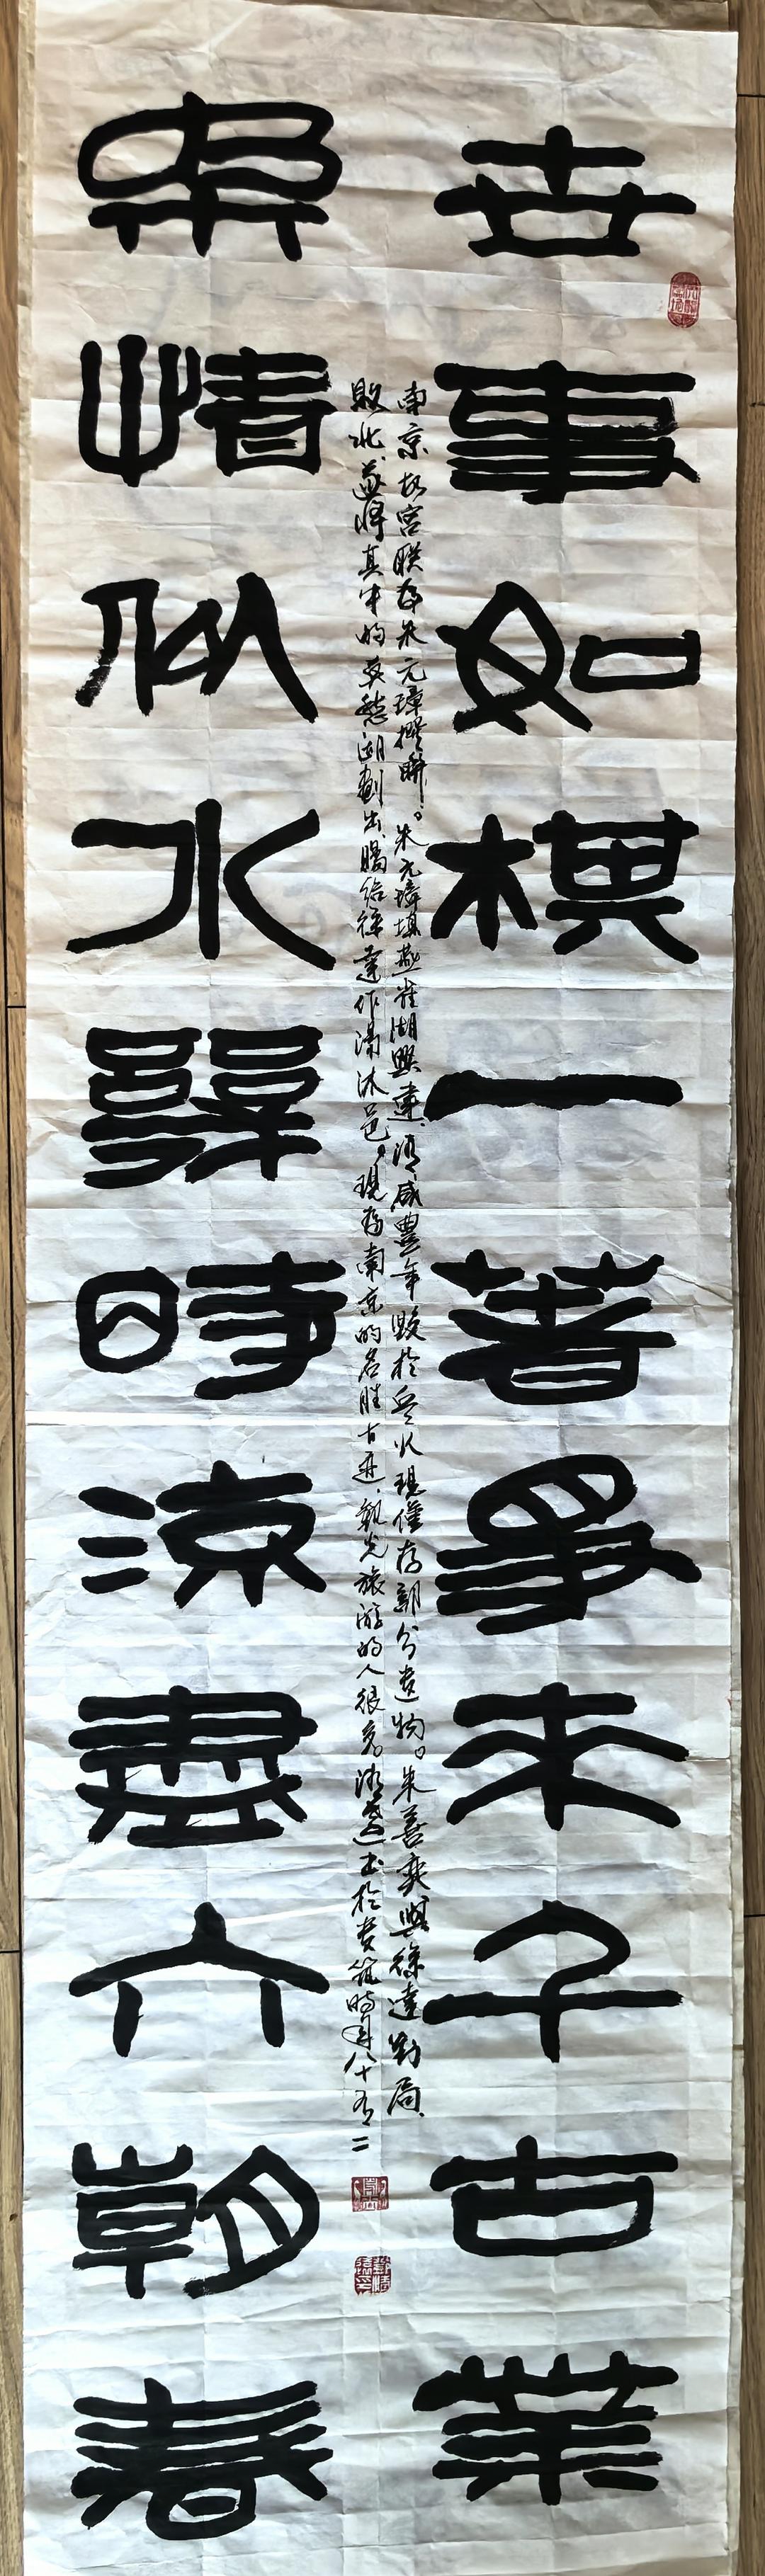 世事如棋一著爭来千古業
南京故宮联为朱元璋撰聯。朱元璋填燕雀湖興建，清咸豐年毀於兵火現僅存部分遺物。朱善奕與徐達對局、
敗北，遂將其中的莫愁湖劃出賜給徐達作湯沐邑，現為南京的名胜古迹，觀光旅游的人很多 書於貴筑時年八十有二
柔情似水幾時涼盡六朝春